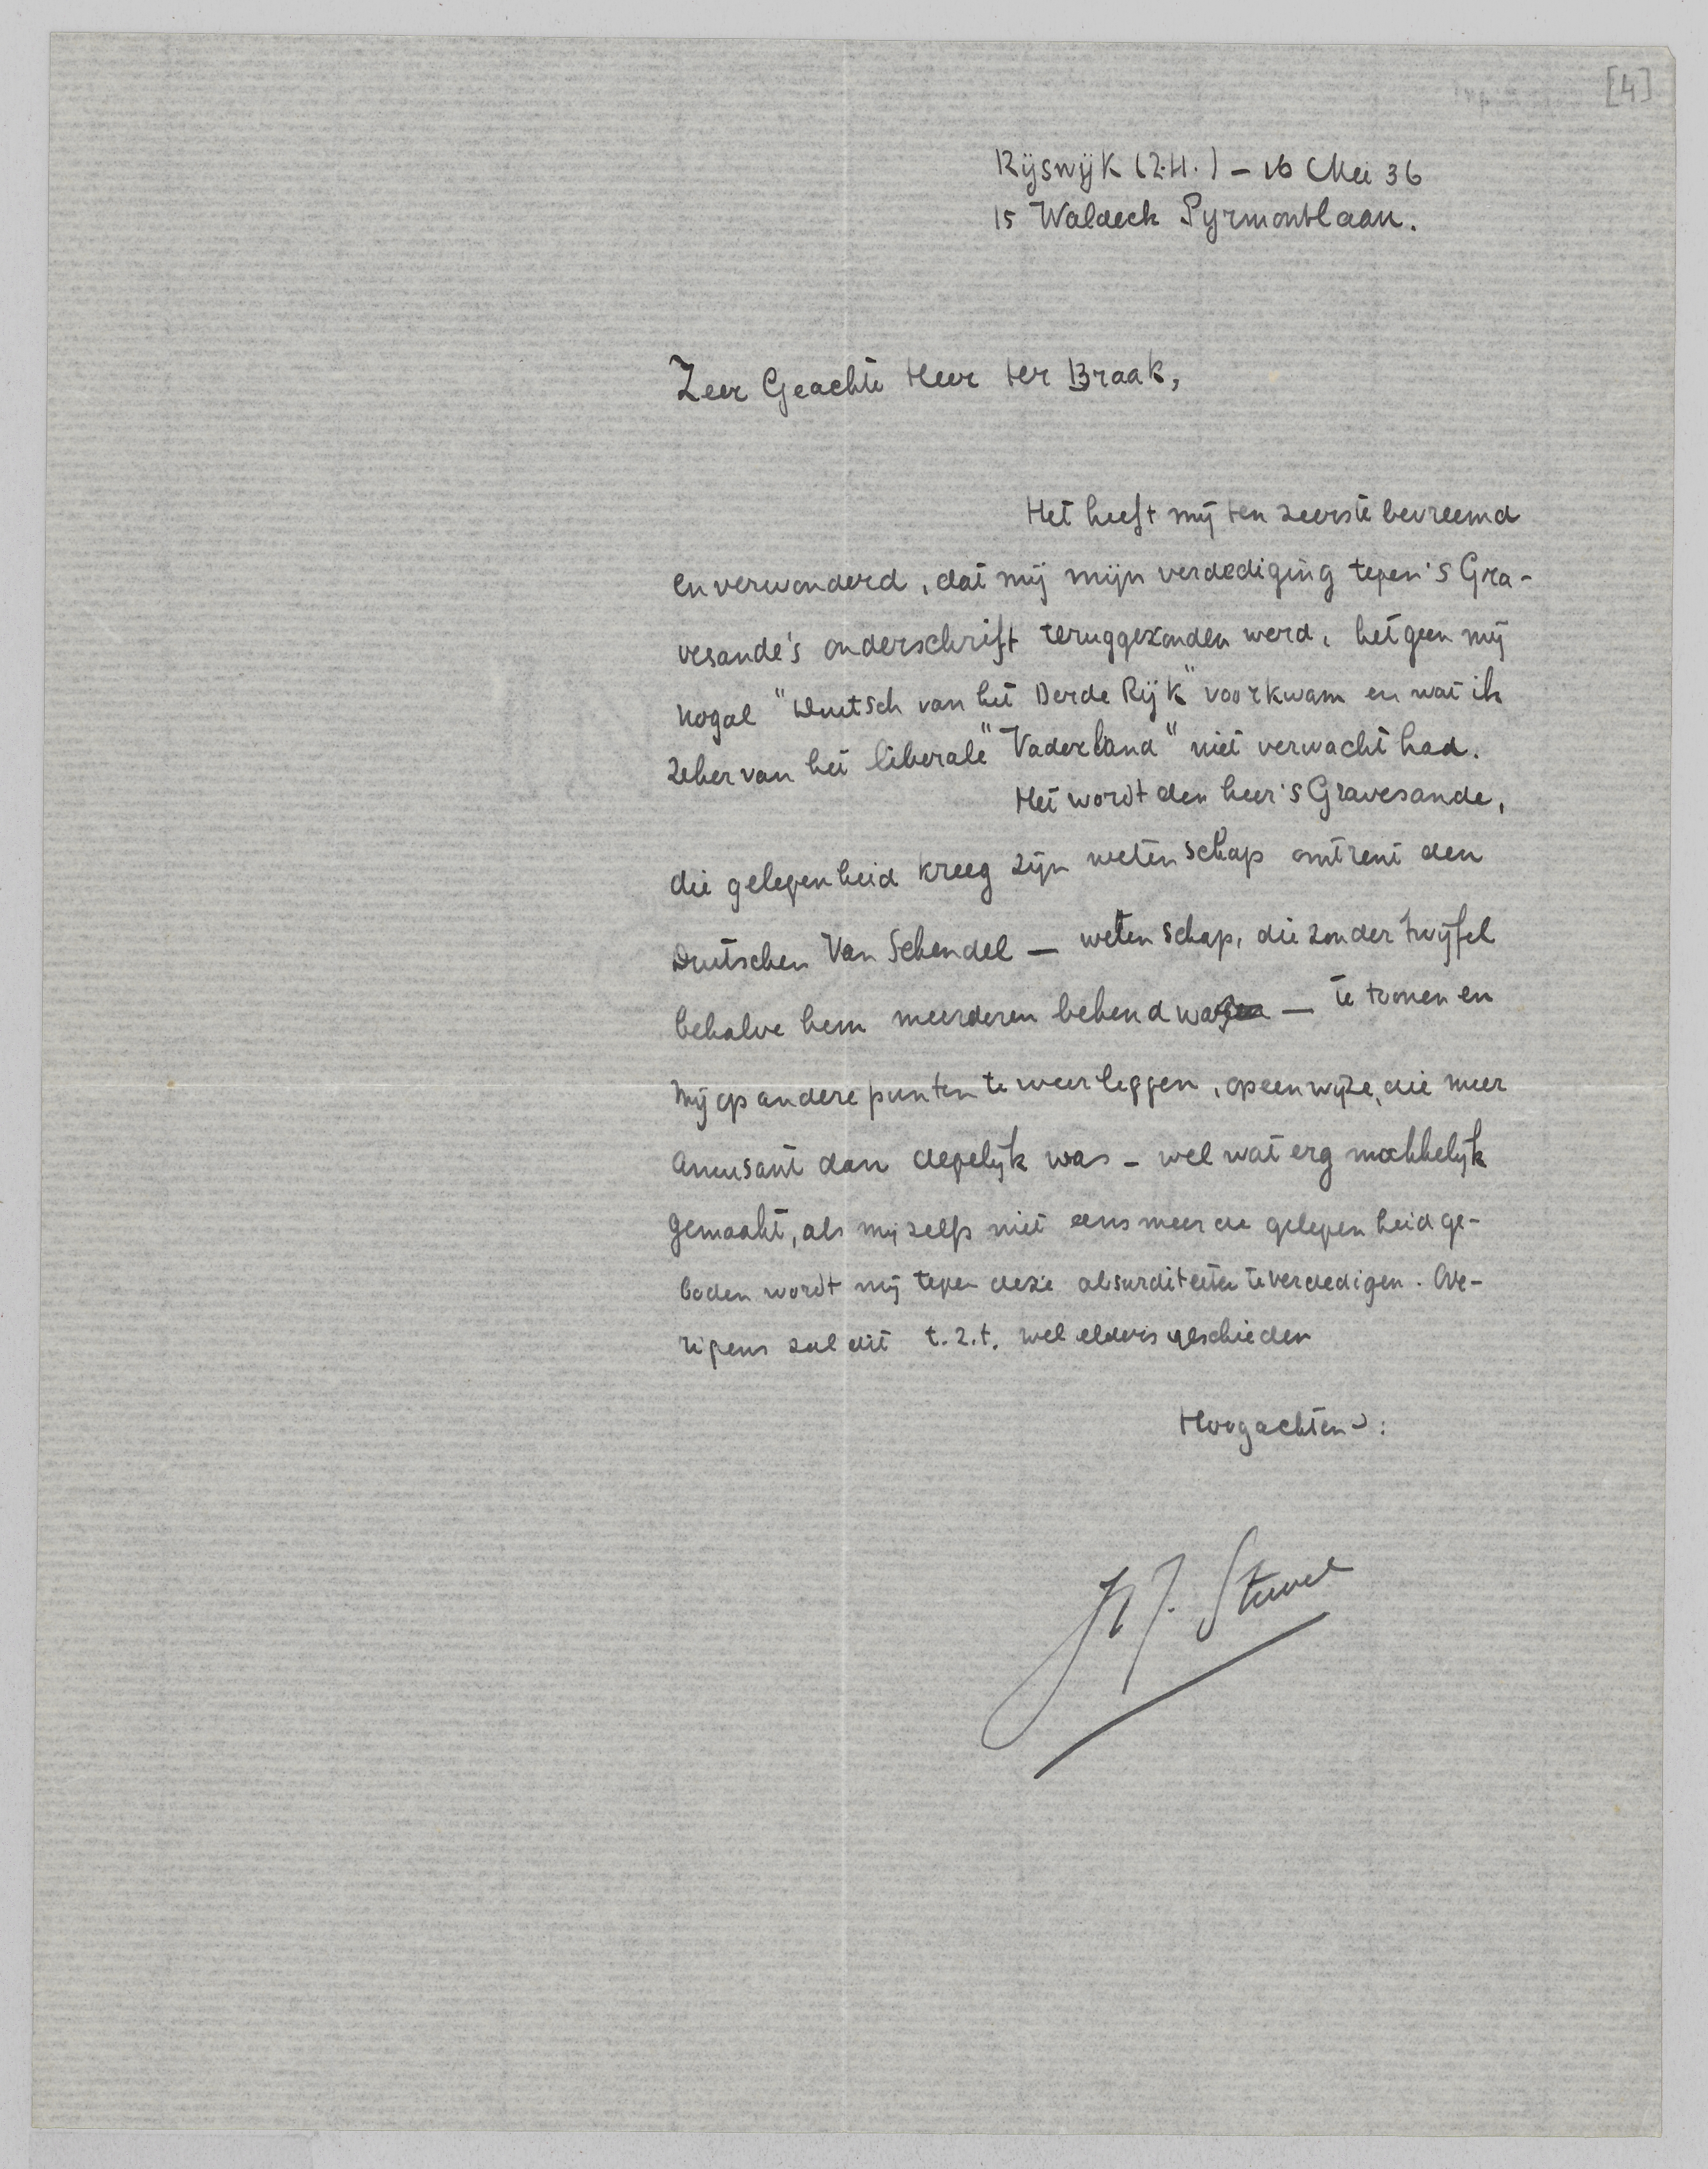 [4]
Rijswijk (Z.H.) – 16 Mei 36
15 Waldeck Pyrmontlaan.
Zeer Geachte Heer ter Braak,
Het heeft mij ten zeerste bevreemd
en verwonderd, dat mij mijn verdediging tegen 's Gra-
vesande's onderschrift teruggezonden werd, hetgeen mij
nogal "Duitsch van het Derde Rijk" voorkwam en wat ik
zeker van het liberale "Vaderland" niet verwacht had.
Het wordt den heer 's Gravesande,
die gelegenheid kreeg zijn wetenschap omtrent den
Duitschen Van Schendel — wetenschap, die zonder twijfel
behalve hem meerderen bekend was — te tonen en
mij op andere punten te weerleggen, op een wijze, die meer
amusant dan degelijk was – wel wat erg makkelijk
gemaakt, als mij zelfs niet eens meer de gelegenheid ge-
boden wordt mij tegen deze absurditeiten te verdedigen. Ove-
rigens zal dit t.z.t. wel elders geschieden
Hoogachtend: